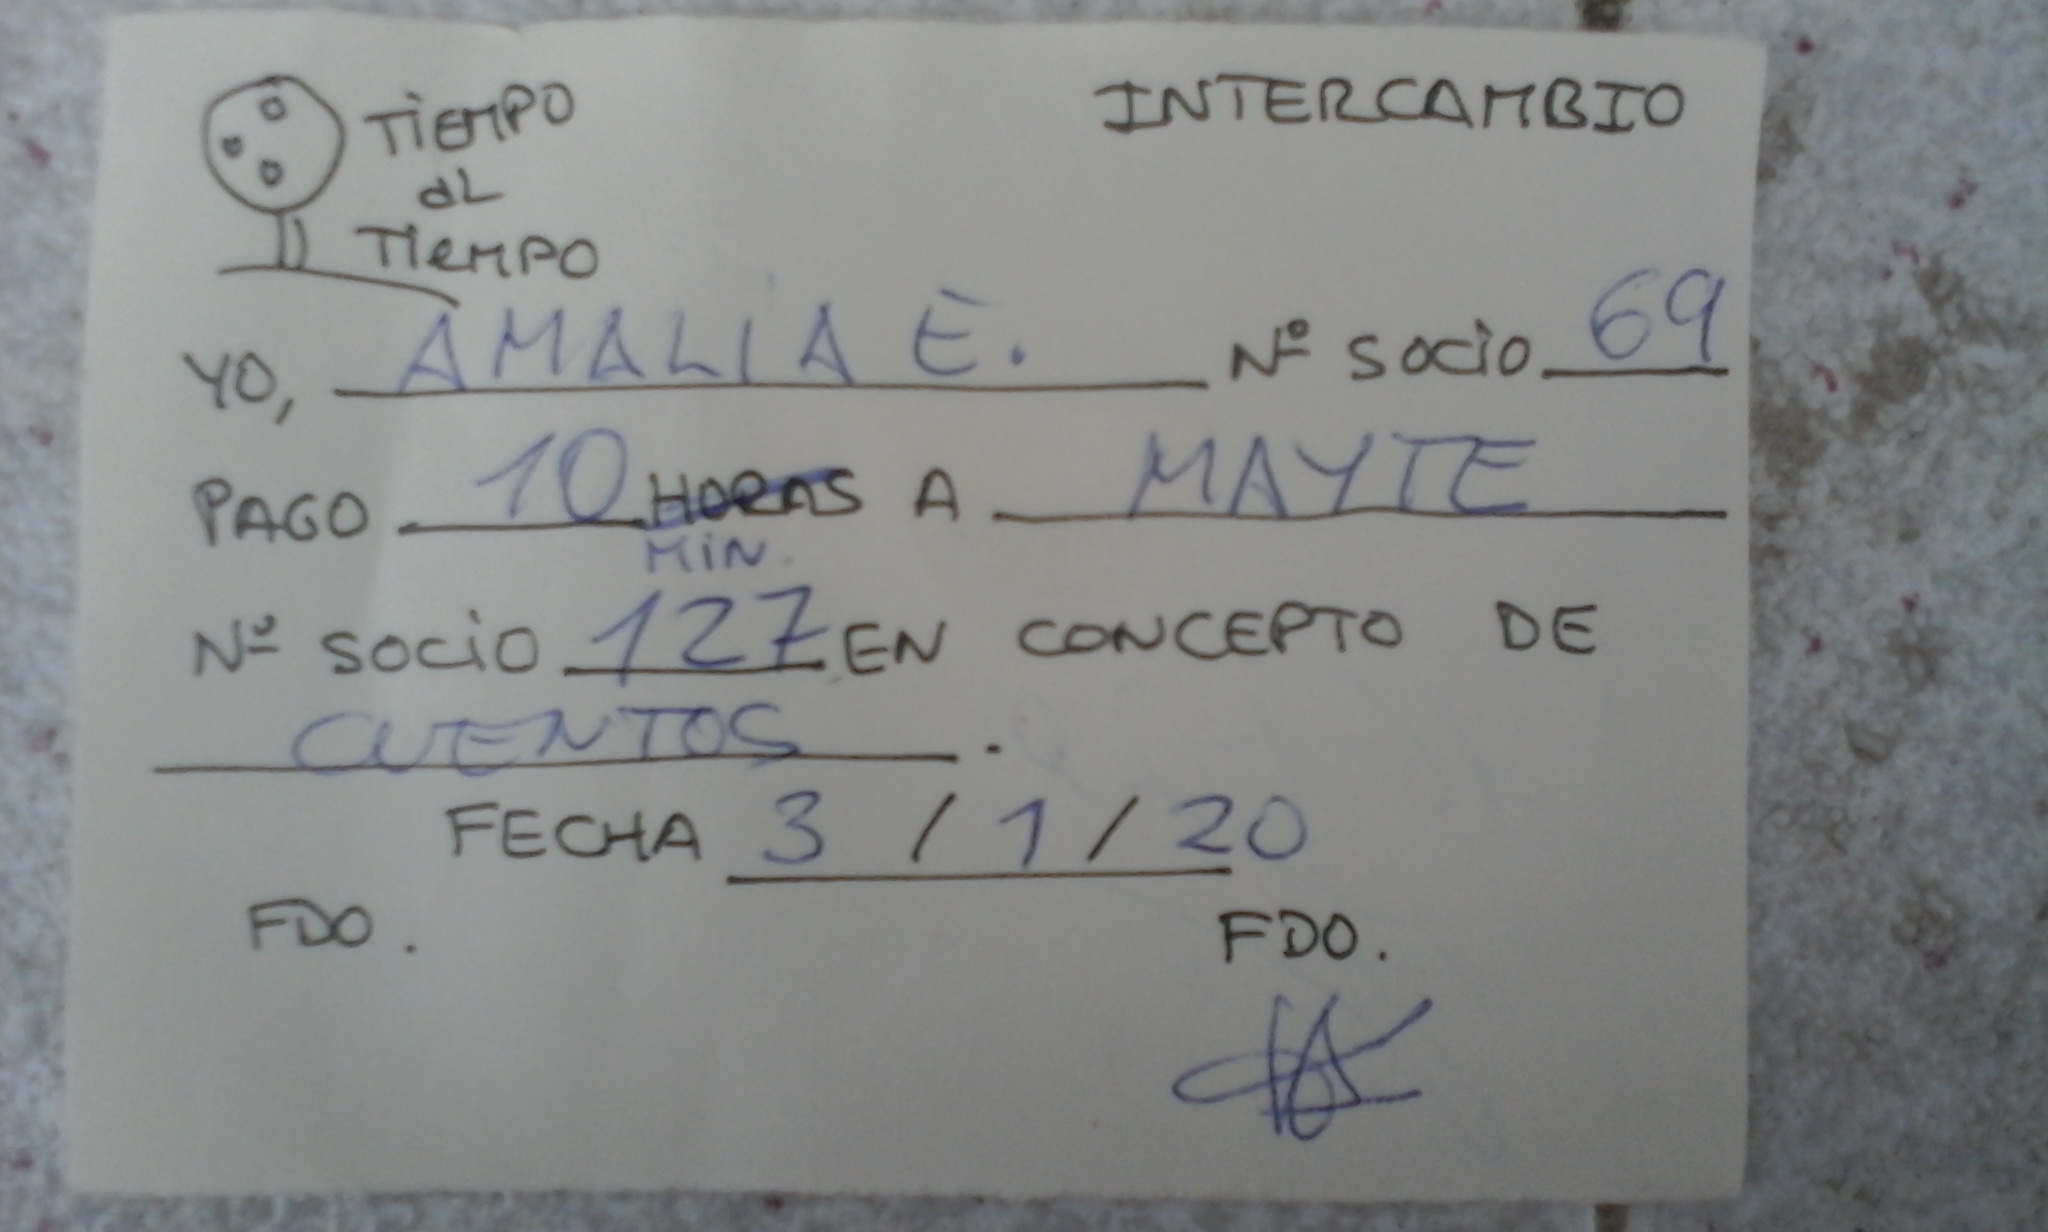 TiEMPO
aL
TiEMPO
INTERCAMBIO
YO, AMALIA E. Nº SOCiO 69
PAGO 10 HORAS A MAYTE
MiN.
Nº SOCiO 127 EN CONCEPTO DE
CUENTOS.
FECHA 3 / 1 / 20
FDO. FDO.